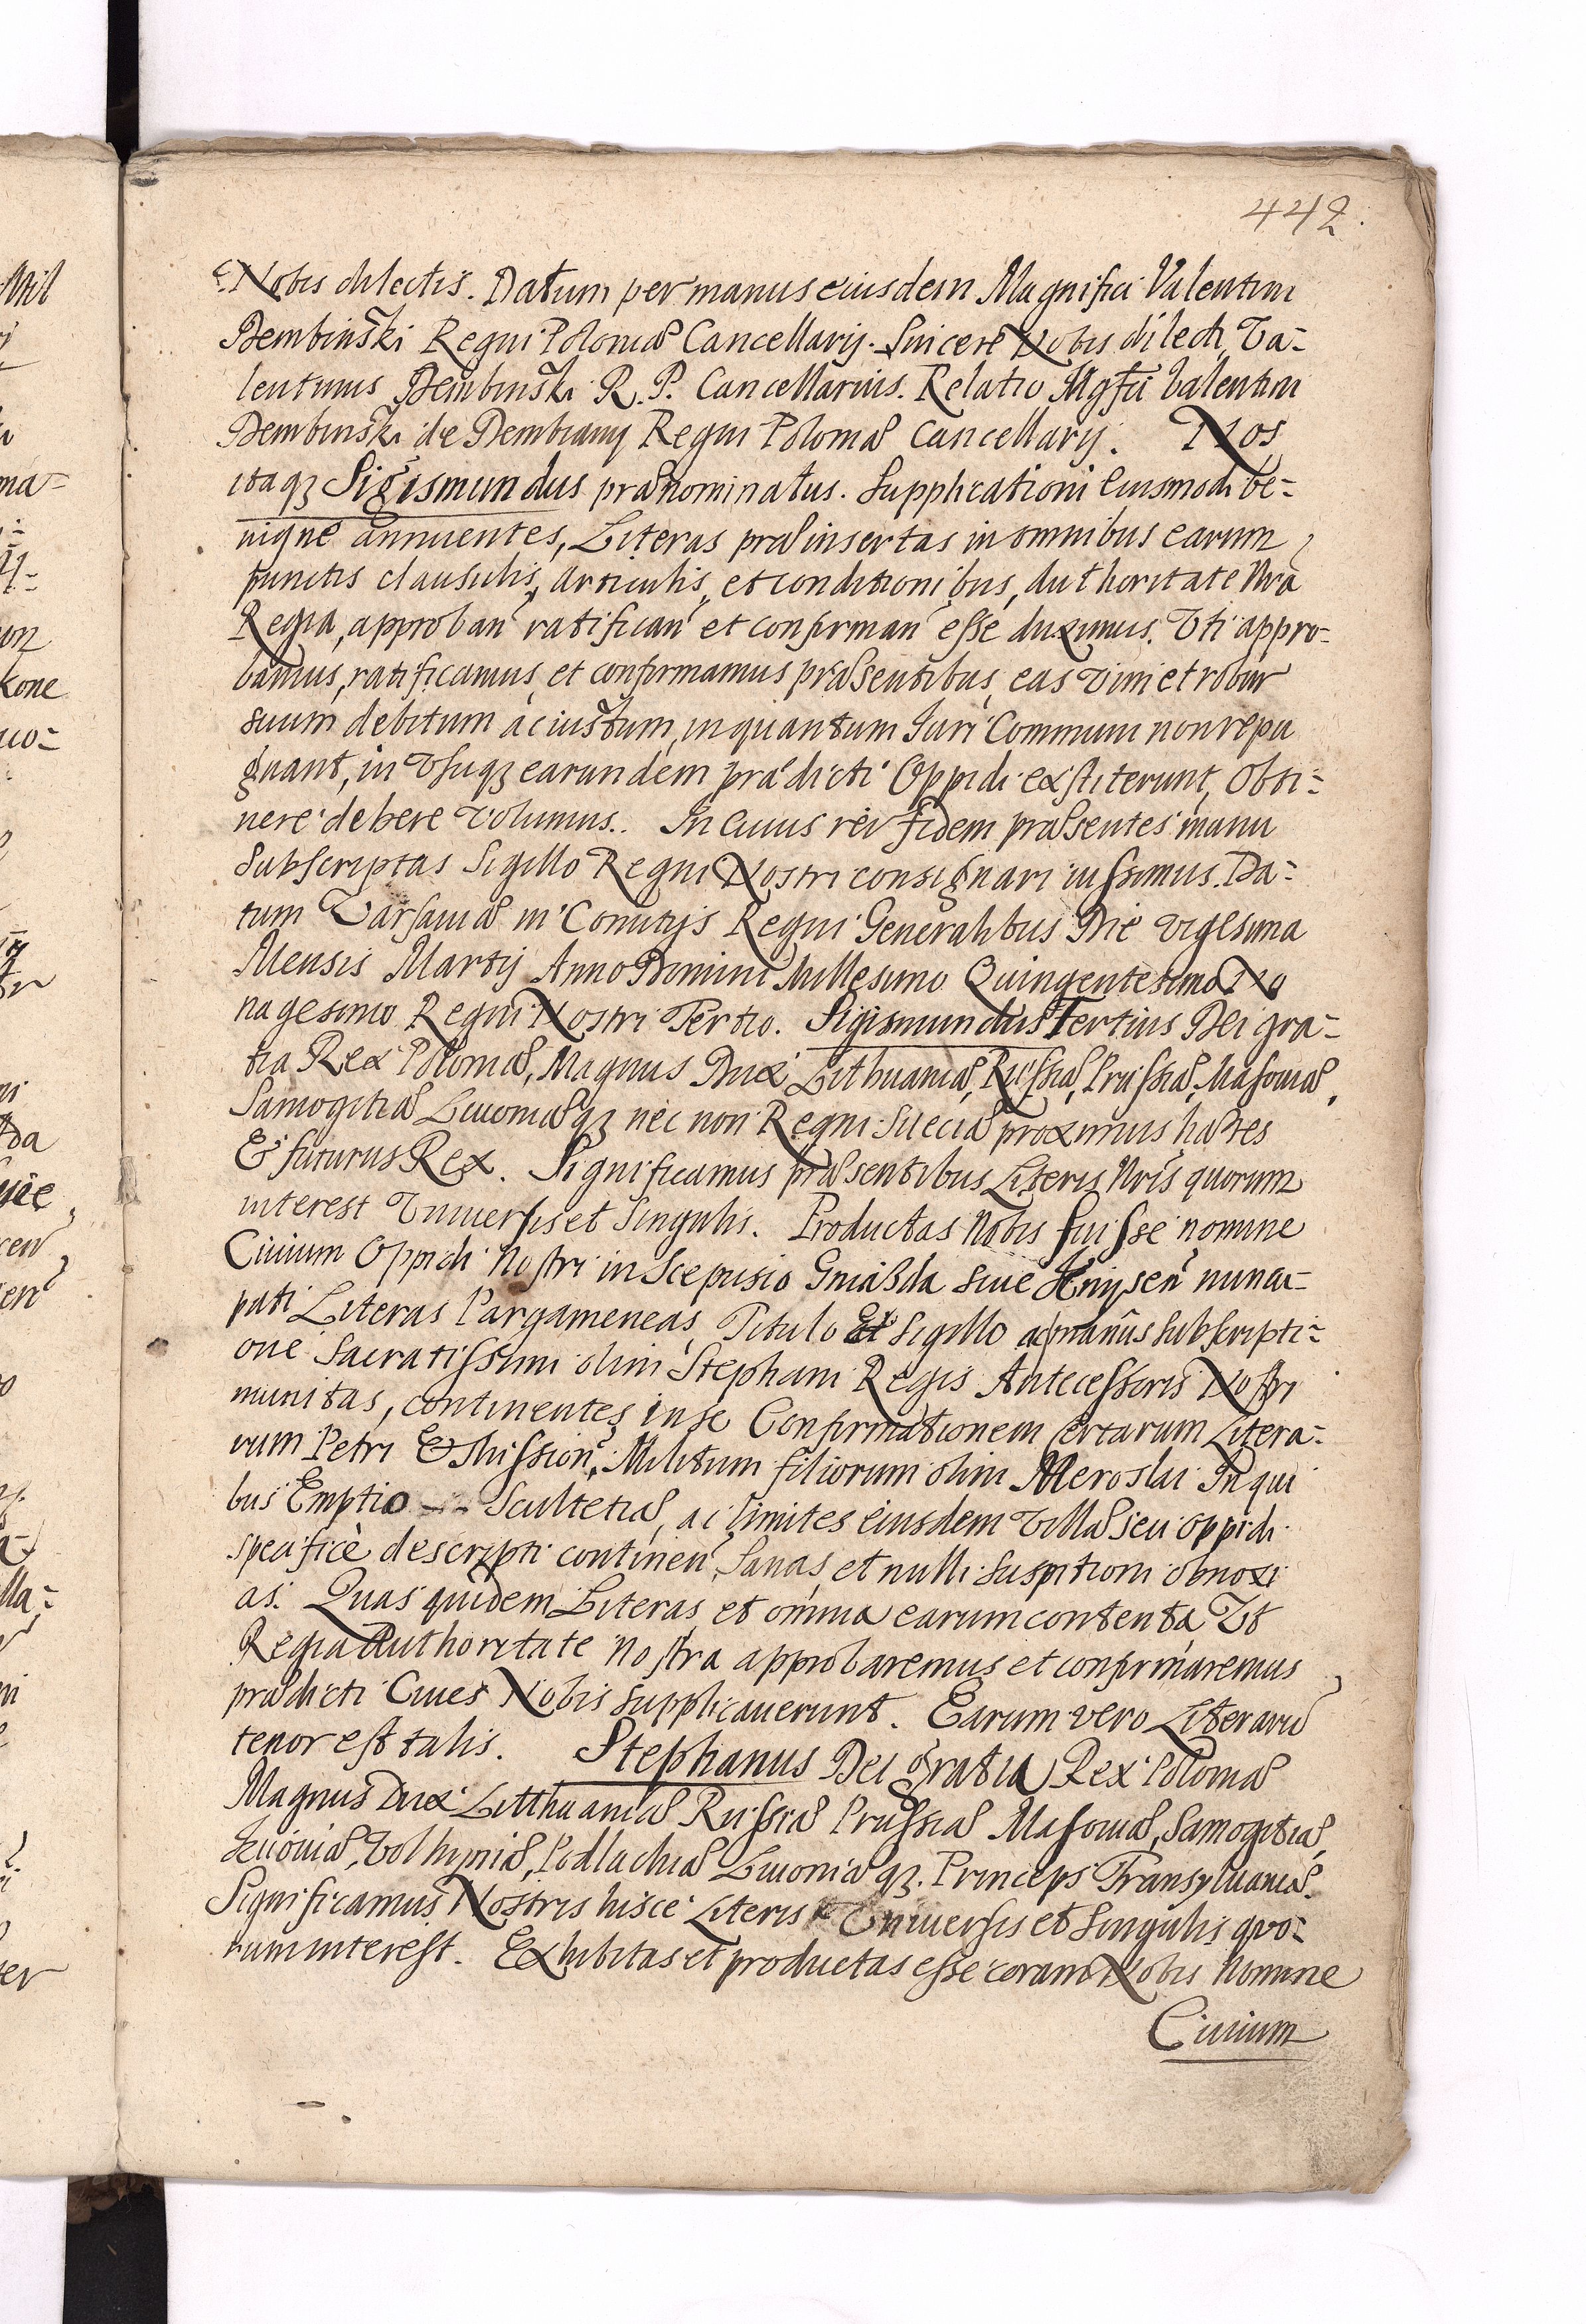 442.
Nobis dilectis. Datum per manus eiusdem Magnifici Valentini
Dembinski Regni Poloniæ Cancellarij. Sincere Nobis dilecti, Va=
lentinus Dembinski R. P. Cancellarius. Relatio Mgfci Valentini
Dembinski de Dembiany Regni Poloniæ Cancellarij. Nos
itaqȝ Sigismundus prænominatus. Supplicationi Eiusmodi be=
nigne annuentes, Literas præinsertas in omnibus earum
punctis clausulis, Articulis, et conditionibus, Authoritate Nrã
Regia, approban̄ ratifican̄ et confirman̄ esse duximus. Vti appro=
bamus, ratificamus, et confirmamus præsentibus, eas vim et robur
suum debitum ac iustum, in quantum Iuri Communi non repu
gnant, in Vsuqȝ earundem prædicti Oppidi exstiterunt, Obti=
nere debere Volumus.. In Cuius rei fidem præsentes manu
Subscriptas Sigillo Regni Nostri consignari iussimus. Da=
tum Varsauiæ in Comitijs Regni Generalibus Die vigesima
Mensis Martij Anno Domini Millesimo Quingentesimo No
nagesimo Regni Nostri Tertio. Sigismundus Tertius Dei gra=
tia Rex Poloniæ, Magnus Dux Lithuaniæ, Russiæ, Prussiæ, Masouiæ,
Samogitiæ Liuoniæqȝ nec non Regni Sueciæ proximus hæres
& futurus Rex. Significamus præsentibus Literis Nris quorum
interest Vniuersis et Singulis. Productas Nobis fuisse nomine
Ciuium Oppidi Nostri in Scepusio Gniasda siue Knysen nuncu=
pati Literas Pargameneas, Titulo Et Sigillo ac manus subscripti=
one Sacratissimi olim Stephani Regis Antecessoris Nostri
munitas, continentes in se Confirmationem certarum Litera=
rum Petri & hission, Militum filiorum olim Meroslai In qui
bus Emptio Scultetiæ, ac limites eiusdem Villæ seu oppidi
specificè descripti continen̄, Sanas, et nulli suspitioni obnoxi
as. Quas quidem Literas et omnia earum contenta, Vt
Regia Authoritate nostra approbaremus et confirmaremus
prædicti Ciues Nobis supplicauerunt. Earum vero Literarū
tenor est talis. Stephanus Dei gratia Rex Poloniæ
Magnus Dux Litthuaniæ Russiæ Prussiæ Masouiæ, Samogitiæ,
Kiiouiæ, Volhyniæ, Podlachiæ Liuoniæqȝ. Princeps Transyluaniæ.
Significamus Nostris hisce Literis Vniuersis et Singulis quo=
rum interest. Exhibitas et productas esse coram Nobis Nomine
Ciuium